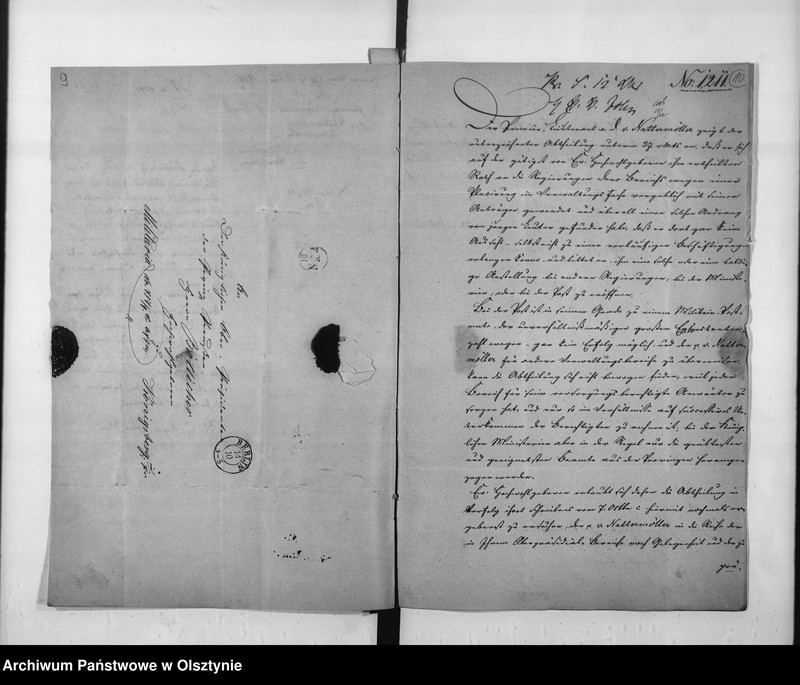 9
An
den Königlichen Ober-Präsidenten
der Provinz Preußen
Herrn Bötticher
Hochwohlgeboren
zu
Königsberg i. Pr.
BERLIN
10
No. 1211.
10
Der Premier-Lieutenant a. D. v. Nattermöller zeigt der
unterzeichneten Abtheilung unterm an, daß er sich
auf den gütigst von Ew. Hochwohlgeboren ihm ertheilten
Rath an die Regierungen des Bereichs wegen einer
Placirung im Verwaltungs Fache vergeblich mit seinen
Anträgen gewendet und überall einen solchen Andrang
von jungen Leuten gefunden habe, daß er dort gar keine
Aussicht – selbst nicht zu einer vorläufigen Beschäftigung
erlangen könne, und bittet er, ihm eine solche oder eine baldi-
ge Anstellung bei anderen Regierungen, bei den Ministe-
rien, oder bei der Post zu eröffnen.
Bei der Post ist in seinem Grade zu einem Militair-Post-
amte, der unverhältnißmäßigen großen Exspectanten
zahl wegen – gar kein Erfolg möglich, und den p. v. Natter-
möller für andere Verwaltungsbereiche zu übernehmen
kann die Abtheilung sich nicht bewogen finden, weil jeder
Bereich für seine versorgungsberechtigte Anwärter zu
sorgen hat, und nur so im Verhältnisse auf successives Un-
terkommen der Berechtigten zu rechnen ist, bei den König-
lichen Ministerien aber in der Regel nur die geübtesten
und geeignetsten Beamte aus den Provinzen herange-
zogen werden.
Ew. Hochwohlgeboren erlaubt sich daher die Abtheilung in
Verfolg ihres Schreibens vom 7. Octbr c. hiermit nochmals er-
gebenst zu ersuchen, den p. v. Nattermöller in die Reihe der
in Ihrem Oberpräsidial Bereiche nach Gelegenheit und der zu
Archiwum Państwowe w Olsztynie